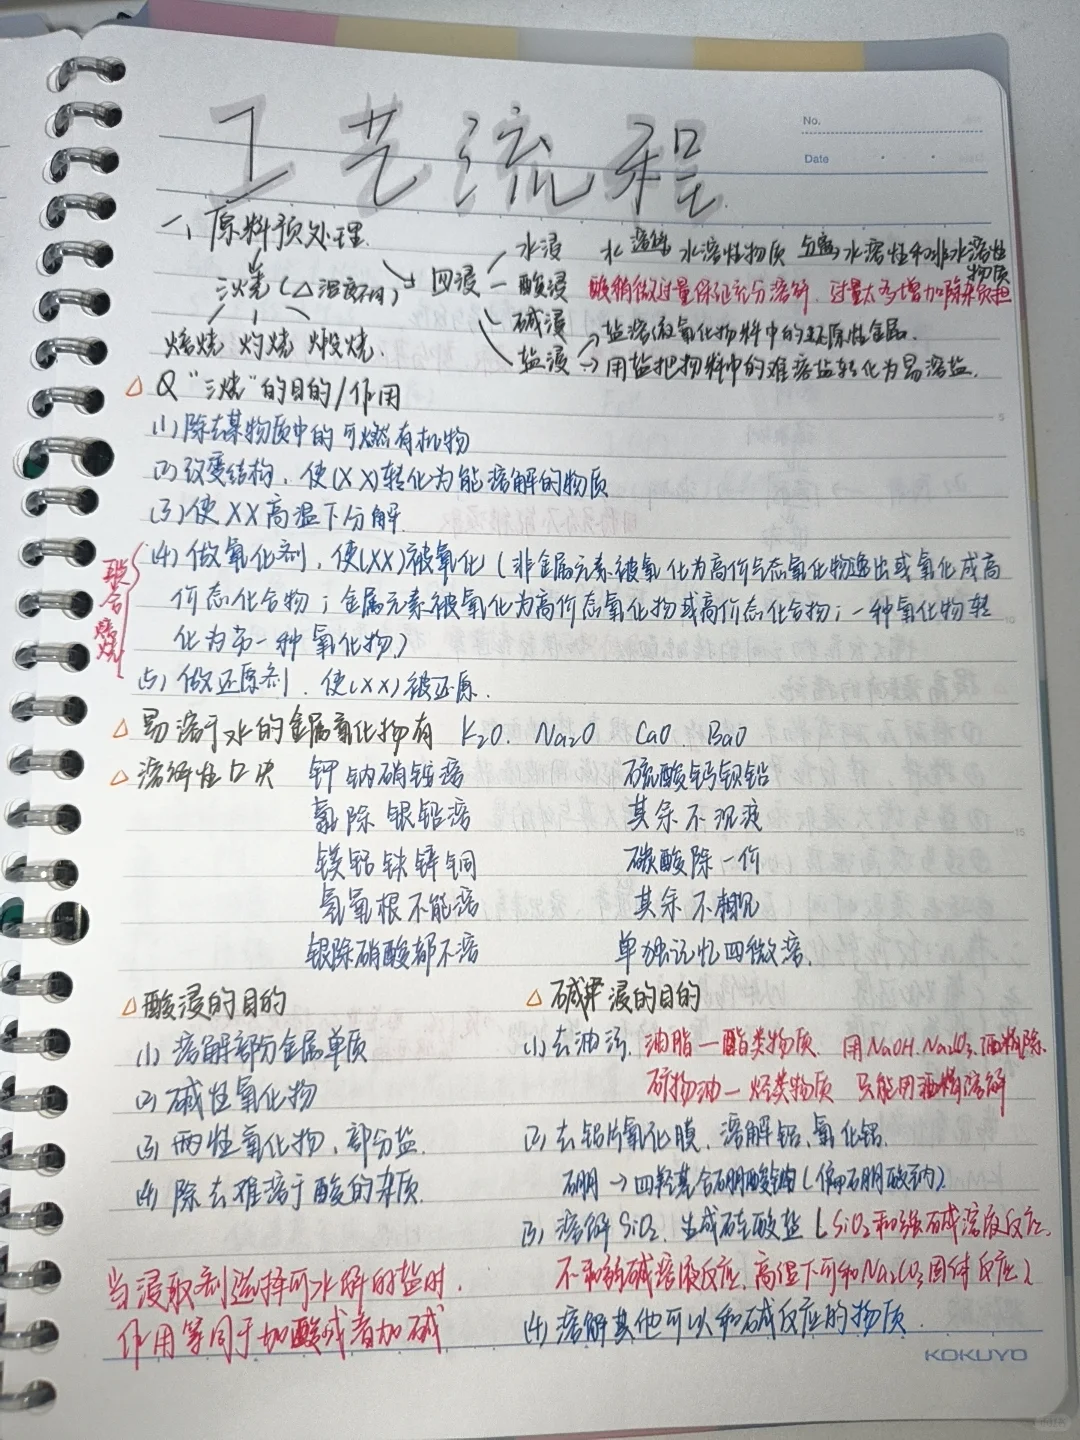 工艺流程
No.
Date
一、原料预处理
三烧(△温度不同) → 四浸
水浸 水溶解 水溶性物质 与 水溶性和非水溶性物质
酸浸 酸稍微过量保证充分溶解,过量太多增加除杂负担
碱浸
盐浸 → 盐溶液氧化物料中的还原性金属.
→ 用盐把物料中的难溶盐转化为易溶盐.
焙烧 灼烧 煅烧.
△ Q “三烧”的目的/作用
(1) 除去某物质中的可燃有机物
(2) 改变结构,使(XX)转化为能溶解的物质
(3) 使XX高温下分解.
(4) 做氧化剂,使(XX)被氧化(非金属元素被氧化为高价气态氧化物逸出或氧化成高
价态化合物;金属元素被氧化为高价态氧化物或高价态化合物;一种氧化物转
化为另一种氧化物)
(5) 做还原剂.使(XX)被还原.
△ 易溶于水的金属氧化物有 K₂O. Na₂O CaO. BaO
△ 溶解性口决 钾钠硝铵溶 硫酸钙钡铅
氯除银铅溶 其余不沉液
镁铝铁锌铜 碳酸除一价
氢氧根不能溶 其余不相见
银除硝酸都不溶 单独记忆四微溶.
△ 酸浸的目的
(1) 溶解部分金属单质
(2) 碱性氧化物
(3) 两性氧化物、部分盐.
(4) 除去难溶于酸的杂质.
当浸取剂选择可水解的盐时.
作用等同于加酸或者加碱
△ 碱浸的目的
(1) 去油污. 油脂—酯类物质. 用NaOH. Na₂CO₃.酒精除.
矿物油—烃类物质 只能用酒精溶解
(2) 去铝片氧化膜.溶解铝.氧化铝.
硼→四羟基合硼酸钠(偏硼酸钠)
(3) 溶解SiO₂.生成硅酸盐(SiO₂和强碱溶液反应.
不和弱碱溶液反应.高温下可和Na₂CO₃固体反应)
(4) 溶解其他可以和碱反应的物质.
KOKUYO